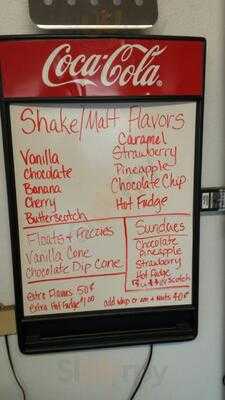 Coca-Cola
Shake/Malt Flavors
Vanilla
Chocolate
Banana
Cherry
Butterscotch
Caramel
Strawberry
Pineapple
Chocolate Chip
Hot Fudge
Floats + Freezies
Vanilla Cone
Chocolate Dip Cone
Sundaes
Chocolate
Pineapple
Strawberry
Hot Fudge
Butterscotch
extra Flavors 50¢
extra Hot Fudge $1.00
add whip cr am + Nuts 40¢